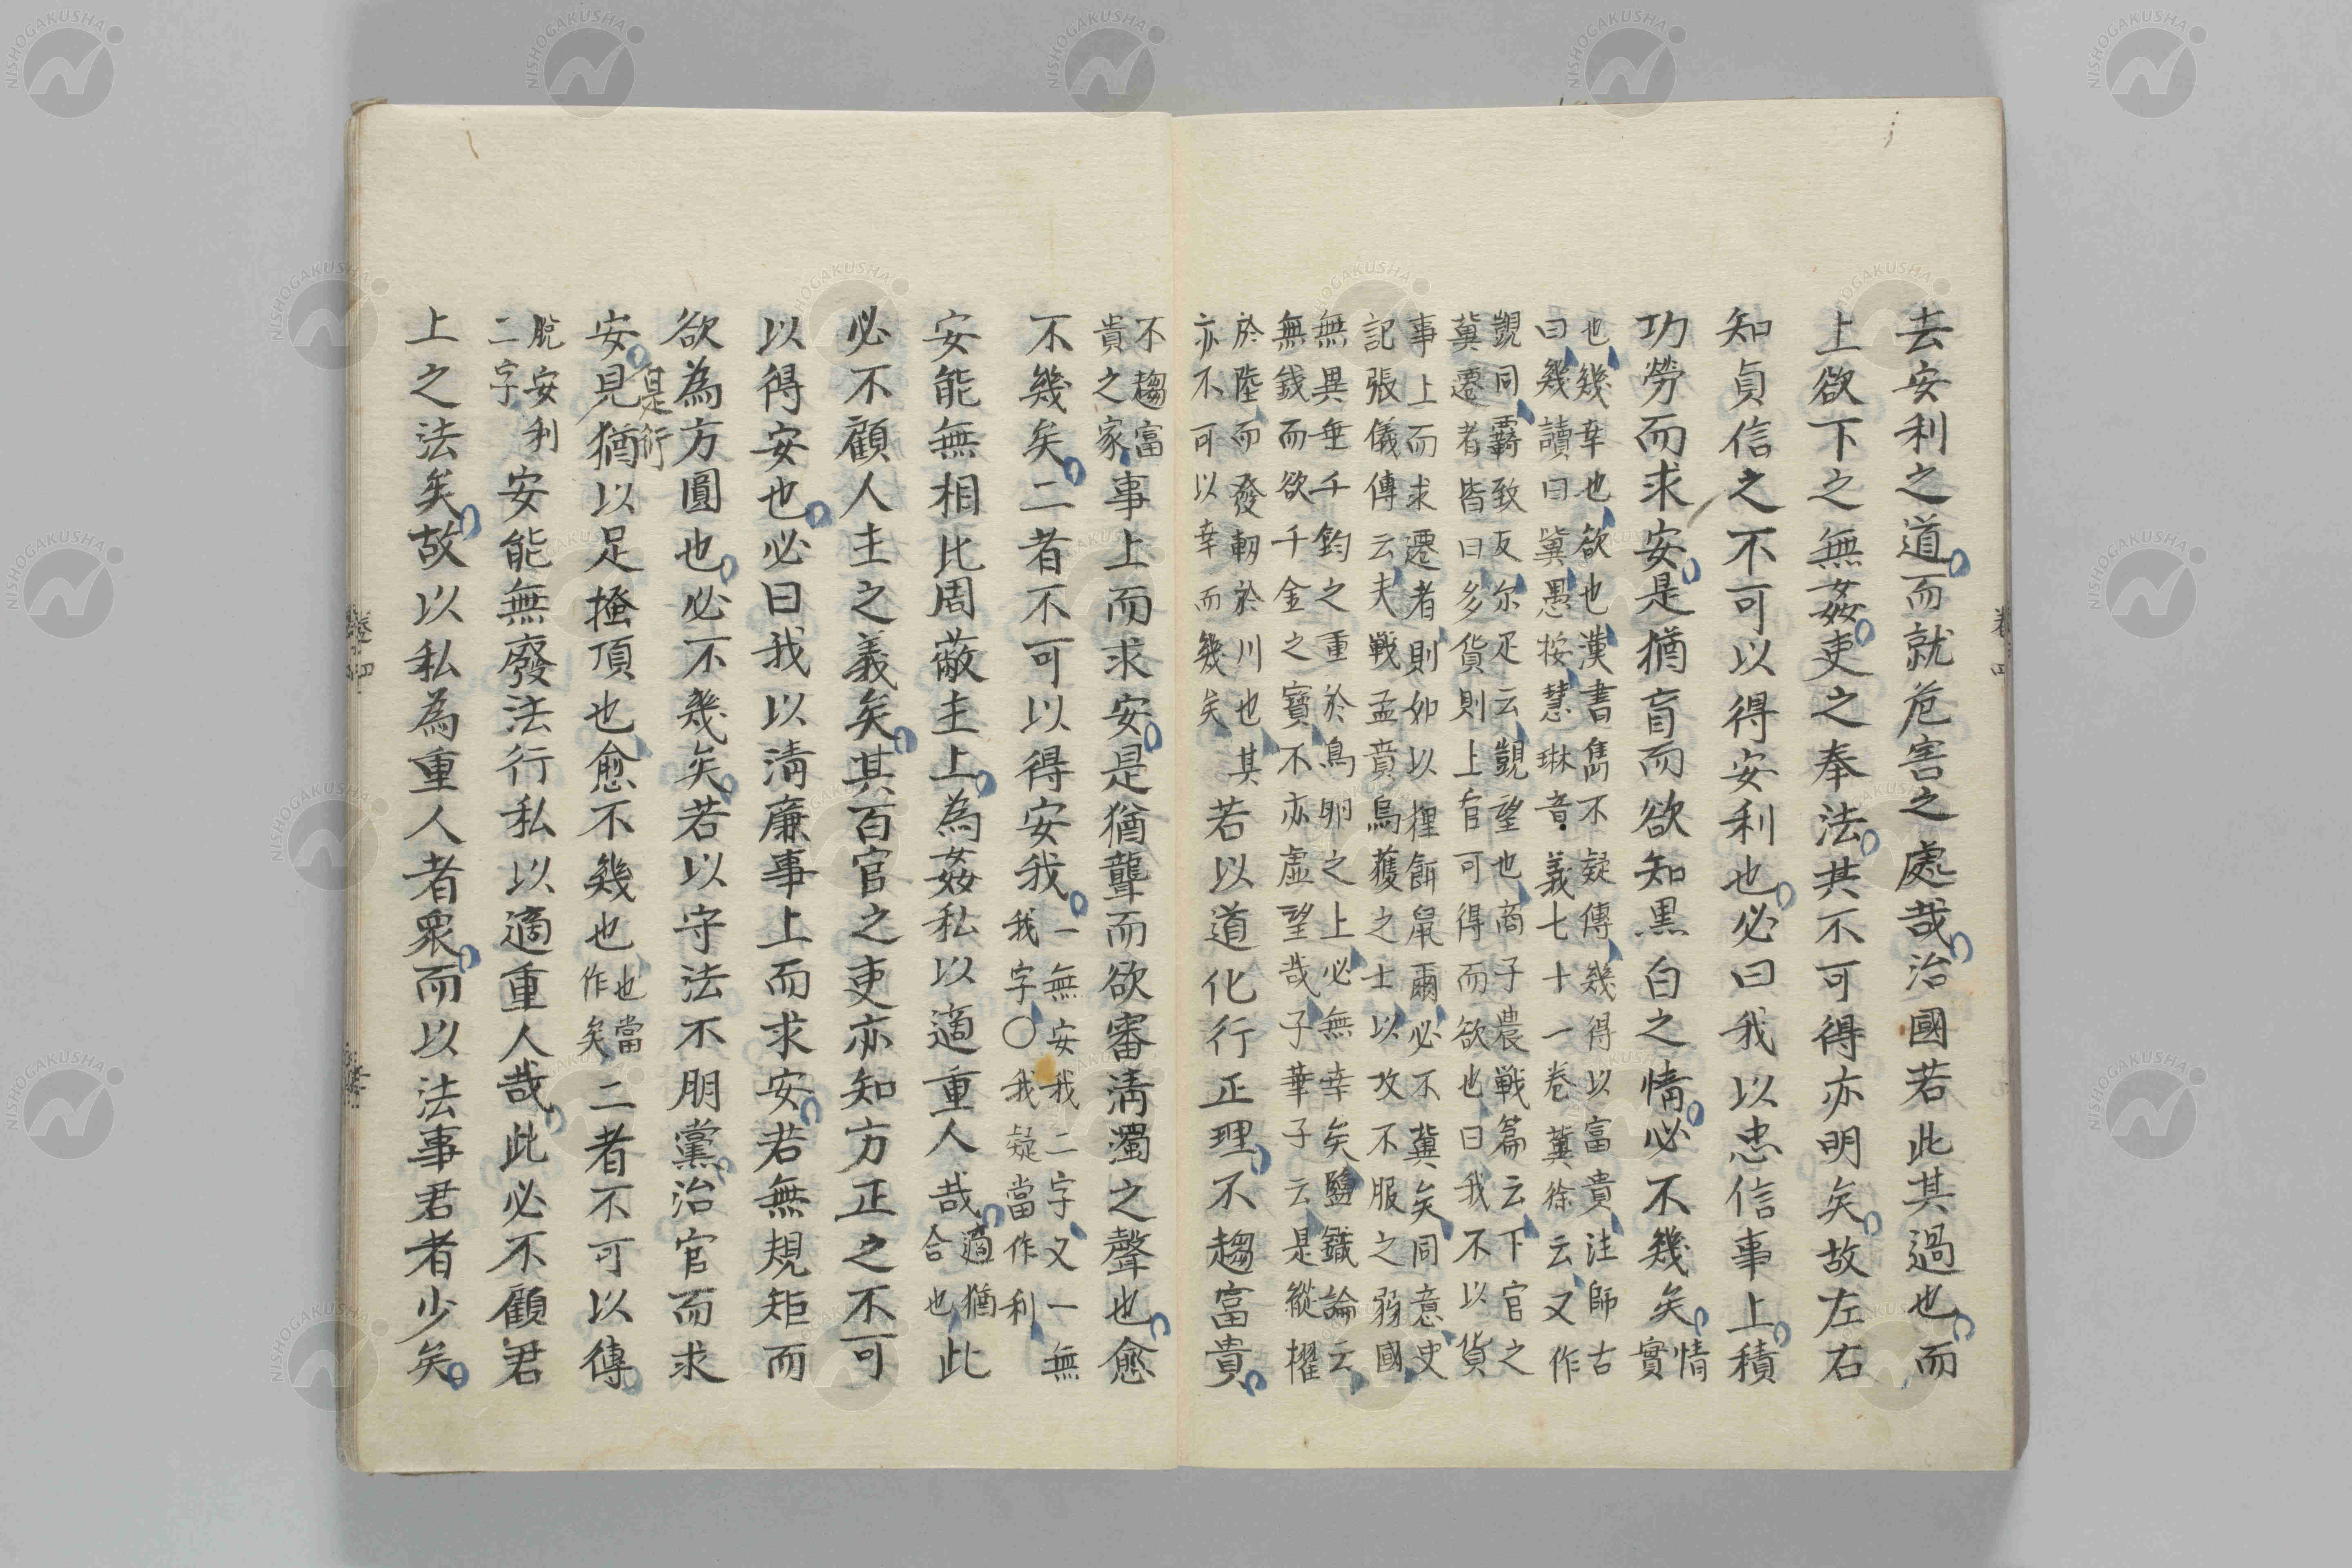 去安利之道而就危害之處哉治國若此其過也而
上欲下之無姦吏之奉法其不可得亦明矣故左右
知貞信之不可以得安利也必曰我以忠信事上積
功勞而求安是猶盲而欲知黒白之情必不幾矣情
實
也幾幸也欲也漢書雋不疑傳幾得以富貴注師古
曰幾讀曰冀愚按慧琳音義七十一卷冀徐云又作
覬同覇致反尒疋云覬望也商子農戦篇云下官之
冀遷者皆曰多貨則上官可得而欲也曰我不以貨
事上而求遷者則如以狸餌鼠爾必不冀矣同意史
記張儀傳云夫戰孟賁烏獲之士以攻不服之弱國
無異垂千鈞之重於鳥卵之上必無幸矣鹽鐵論云
無錢而欲千金之寶不亦虛望哉子華子云是縱櫂
於陸而發軔於川也其
亦不可以幸而幾矣
若以道化行正理不趨富貴
不趨富
貴之家
事上而求安是猶聾而欲審淸濁之聲也愈
不幾矣二者不可以得安我
一無安我二字又一無
我字〇我疑當作利
安能無相比周蔽主上為姦私以適重人哉
適猶
合也
此
必不顧人主之義矣其百官之吏亦知方正之不可
以得安也必曰我以淸廉事上而求安若無規矩而
欲為方圓也必不幾矣若以守法不朋黨治官而求
安見猶以足搔頂也愈不幾也
是術
也當
作矣
二者不可以得
脫安利
二字
安能無廢法行私以適重人哉此必不顧君
上之法矣故以私為重人者衆而以法事君者少矣
卷四
NISHOGAKUSHA